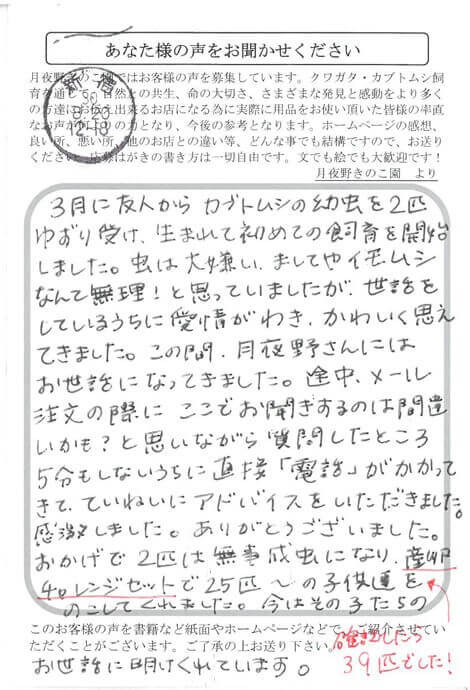 あなた様の声をお聞かせください
月夜野きのこ園ではお客様の声を募集しています。クワガタ・カブトムシ飼
育を通じて、自然との共生、命の大切さ、さまざまな発見と感動をより多く
の方達にお伝え出来るお店になる為に実際に用品をお使い頂いた皆様の率直
なお声が何よりの力となり、今後の参考となります。ホームページの感想、
良い所、悪い所、他のお店との違い等、どんな事でも結構ですので、お送り
ください。応募はがきの書き方は一切自由です。文でも絵でも大歓迎です！
月夜野きのこ園　より
3月に友人から カブトムシの幼虫を2匹
ゆずり受け、生まれて初めての飼育を開始
しました。虫は大嫌い、ましてやイモムシ
なんて無理！と思っていましたが、世話を
しているうちに愛情がわき、かわいく思え
てきました。この間、月夜野さんには
お世話になってきました。途中、メール
注文の際に ここでお聞きするのは間違
いかも？と思いながら 質問したところ
5分もしないうちに直接「電話」がかかって
きて、ていねいにアドバイスをいただきました。
感激しました。ありがとうございました。
おかげで2匹は無事成虫になり、産卵
40レンジセットで25匹〜の子供達を
のこしてくれました。今はその子たちの
このお客様の声を書籍など紙面やホームページなどでご紹介させてい
ただくことがございます。ご了承の上お送り下さい。
お世話に明けくれています。
確認したら
39匹でした！